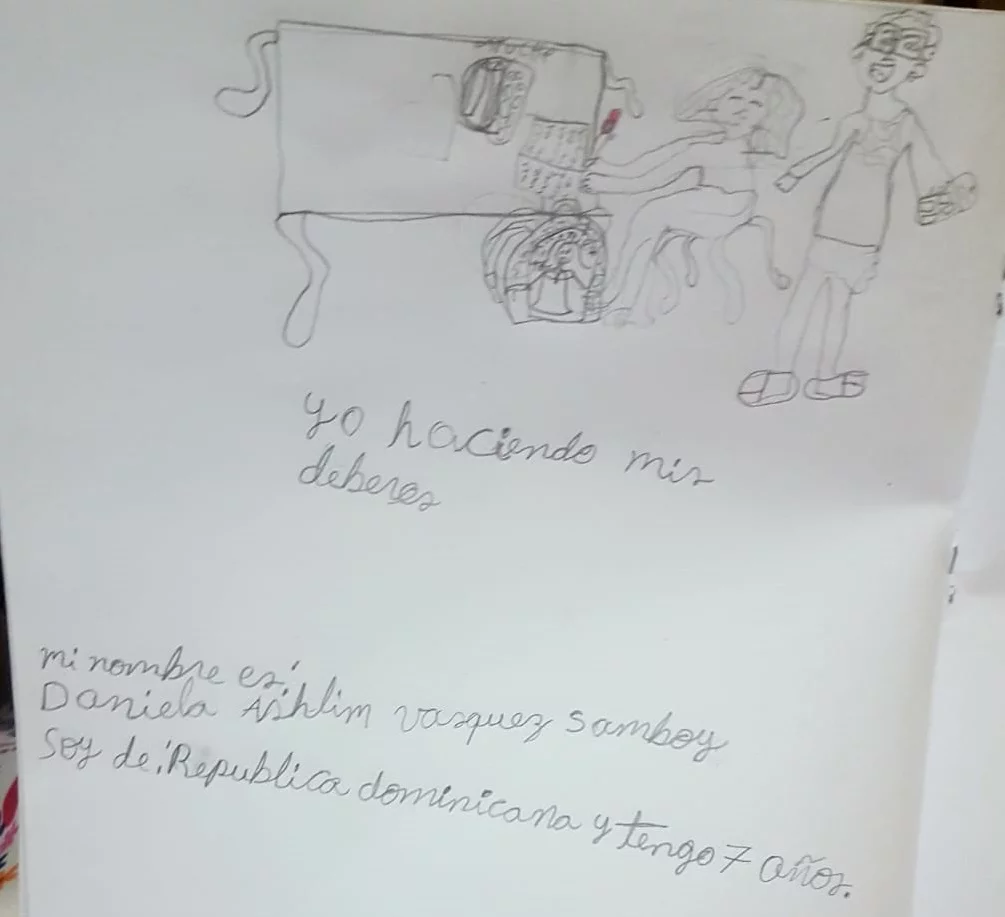 yo haciendo mis
deberes
mi nombre es:
Daniela Ashlim vasquez samboy
soy de: Republica dominicana y tengo 7 años.